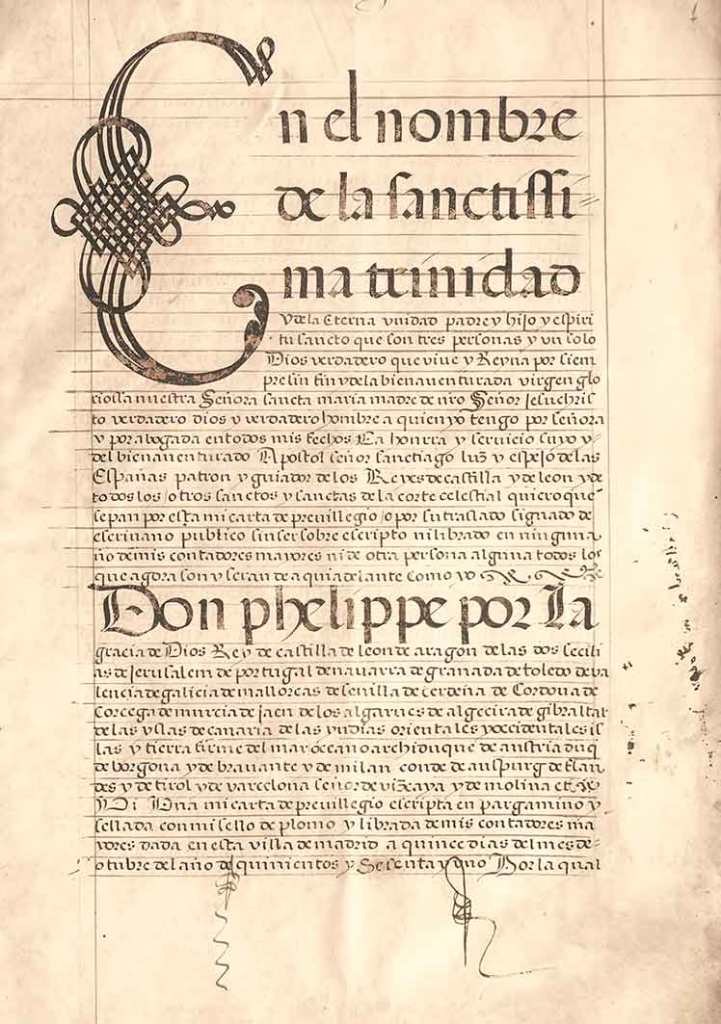 En el nombre
de la sanctissi
ma trinidad
y dela Eterna vnidad padre y hijo y espiri
tu sancto que son tres personas y vn solo
Dios verdadero que vive y Reyna por siem
pre sin fin y dela bienaventurada virgen glo
riossa nuestra Señora sancta maria madre de nro Señor Jesuchris
to verdadero dios y verdadero hombre a quien yo tengo por señora
y por abogada en todos mis fechos E a honrra y servicio suyo y
del bienaventurado Apostol señor sanctiago luz y espejo de las
Españas patron y guiador de los Reyes de castilla y de leon y de
todos los otros sanctos y sanctas de la corte celestial quiero que
sepan por esta mi carta de previllegio o por su traslado signado de
escrivano publico sin ser sobre escripto ni librado en ningun a
ño de mis contadores mayores ni de otra persona alguna todos los
que agora son y seran de aqui adelante como yo
Don phelippe por la
gracia de Dios Rey de castilla de leon de aragon de las dos secili
as de Jerusalem de portugal de navarra de granada de toledo de va
lencia de galicia de mallorcas de sevilla de cerdeña de Cordova de
Corcega de murcia de jaen de los algarves de algecira de gibraltar
de las yslas de canaria de las yndias orientales y occidentales is
las y tierra firme del mar oceano archiduque de austria duq
de borgoña y de bravante y de milan conde de auspurg de flan
des y de tirol y de varcelona señor de vizcaya y de molina etc
Vi Una mi carta de previllegio escripta en pargamino y
sellada con mi sello de plomo y librada de mis contadores ma
yores dada en esta villa de madrid a quince dias del mes de
otubre del año de quinientos y Sesenta y Por la qual